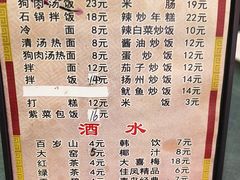 狗肉汤饭 23元
石锅拌饭 18元
冷面 8元
清汤汤面 8元
狗肉汤面 12元
拌面 12元
拌饭 14元
打糕 12元
紫菜包饭 16元
米肠
辣炒年糕 22元
辣白菜炒饭 10元
酱油炒饭 10元
蛋炒饭 10元
茄子炒饭 12元
扬州炒饭 14元
鱿鱼炒饭 14元
米饭 2元
酒水
百岁山 4元
大窑 5元
红茶 4元
绿茶 4元
韩饮 7元
椰汁 8元
大喜梅 18元
佳凤精品 7元